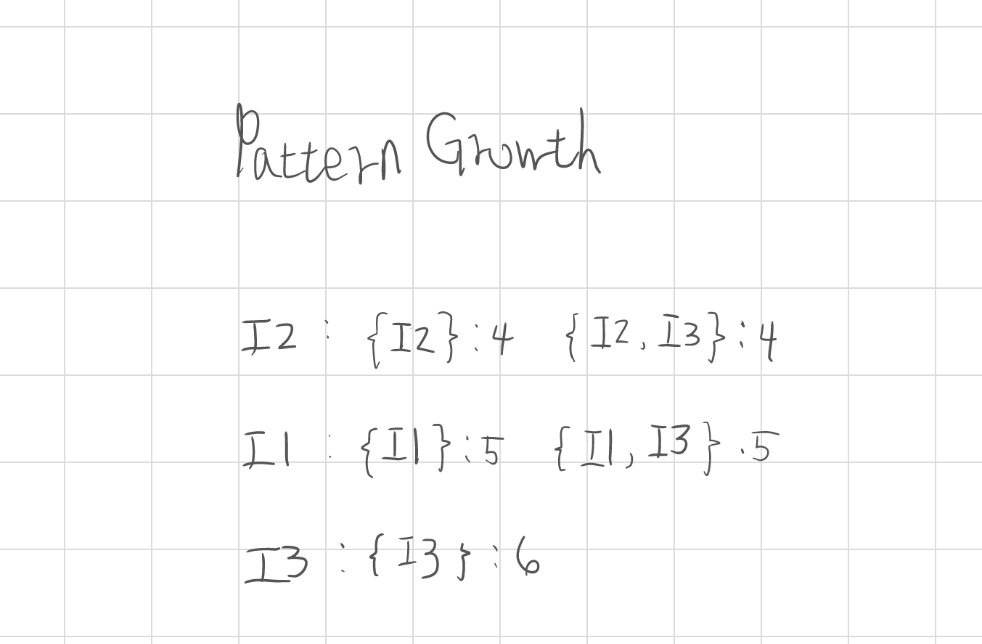 Pattern Growth
I2 : {I2}:4 {I2, I3}:4
I1 : {I1}:5 {I1, I3}.5
I3 : {I3}:6